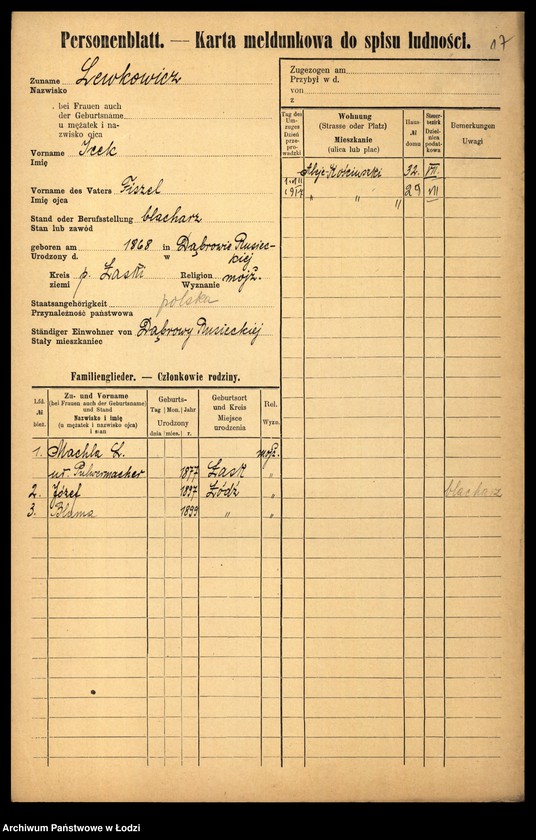 Personenblatt. — Karta meldunkowa do spisu ludności.
17
Zuname Lewkowicz
Nazwisko
bei Frauen auch
der Geburtsname
u mężatek i na-
zwisko ojca
Vorname Icek
Imię
Vorname des Vaters Fiszel
Imię ojca
Stand oder Berufsstellung blacharz
Stan lub zawód
geboren am 1868 in Dąbrowie Rusiec-
Urodzony d. w kiej
Kreis p. Łaski Religion mojż.
ziemi Wyznanie
Staatsangehörigkeit polska
Przynależność państwowa
Ständiger Einwohner von Dąbrowy Rusieckiej
Stały mieszkaniec
Zugezogen am
Przybył w d.
von
z
Tag des Um-zuges Dzień prze-prowadzki
Wohnung
(Strasse oder Platz)
Mieszkanie
(ulica lub plac)
Haus № domu
Steuer-bezirk Dziel-nica podat-kowa
Bemerkungen
Uwagi
Kościuszki 32. VII.
1917 " " 29 VII
"
Familienglieder. — Członkowie rodziny.
Lfd. № bież.
Zu- und Vorname
(bei Frauen auch der Geburtsname)
und Stand
Nazwisko i imię
(u mężatek i nazwisko ojca)
i stan
Geburts-
Tag | Mon. | Jahr
Urodzony
dnia | mies. | r.
Geburtsort
und Kreis
Miejsce
urodzenia
Rel.
Wyzn.
1. Machla L. mojż.
ur. Pulwermacher 1877 Łask "
2. Józef 1897 Łódź " blacharz
3. Bluma 1899 " "
Archiwum Państwowe w Łodzi